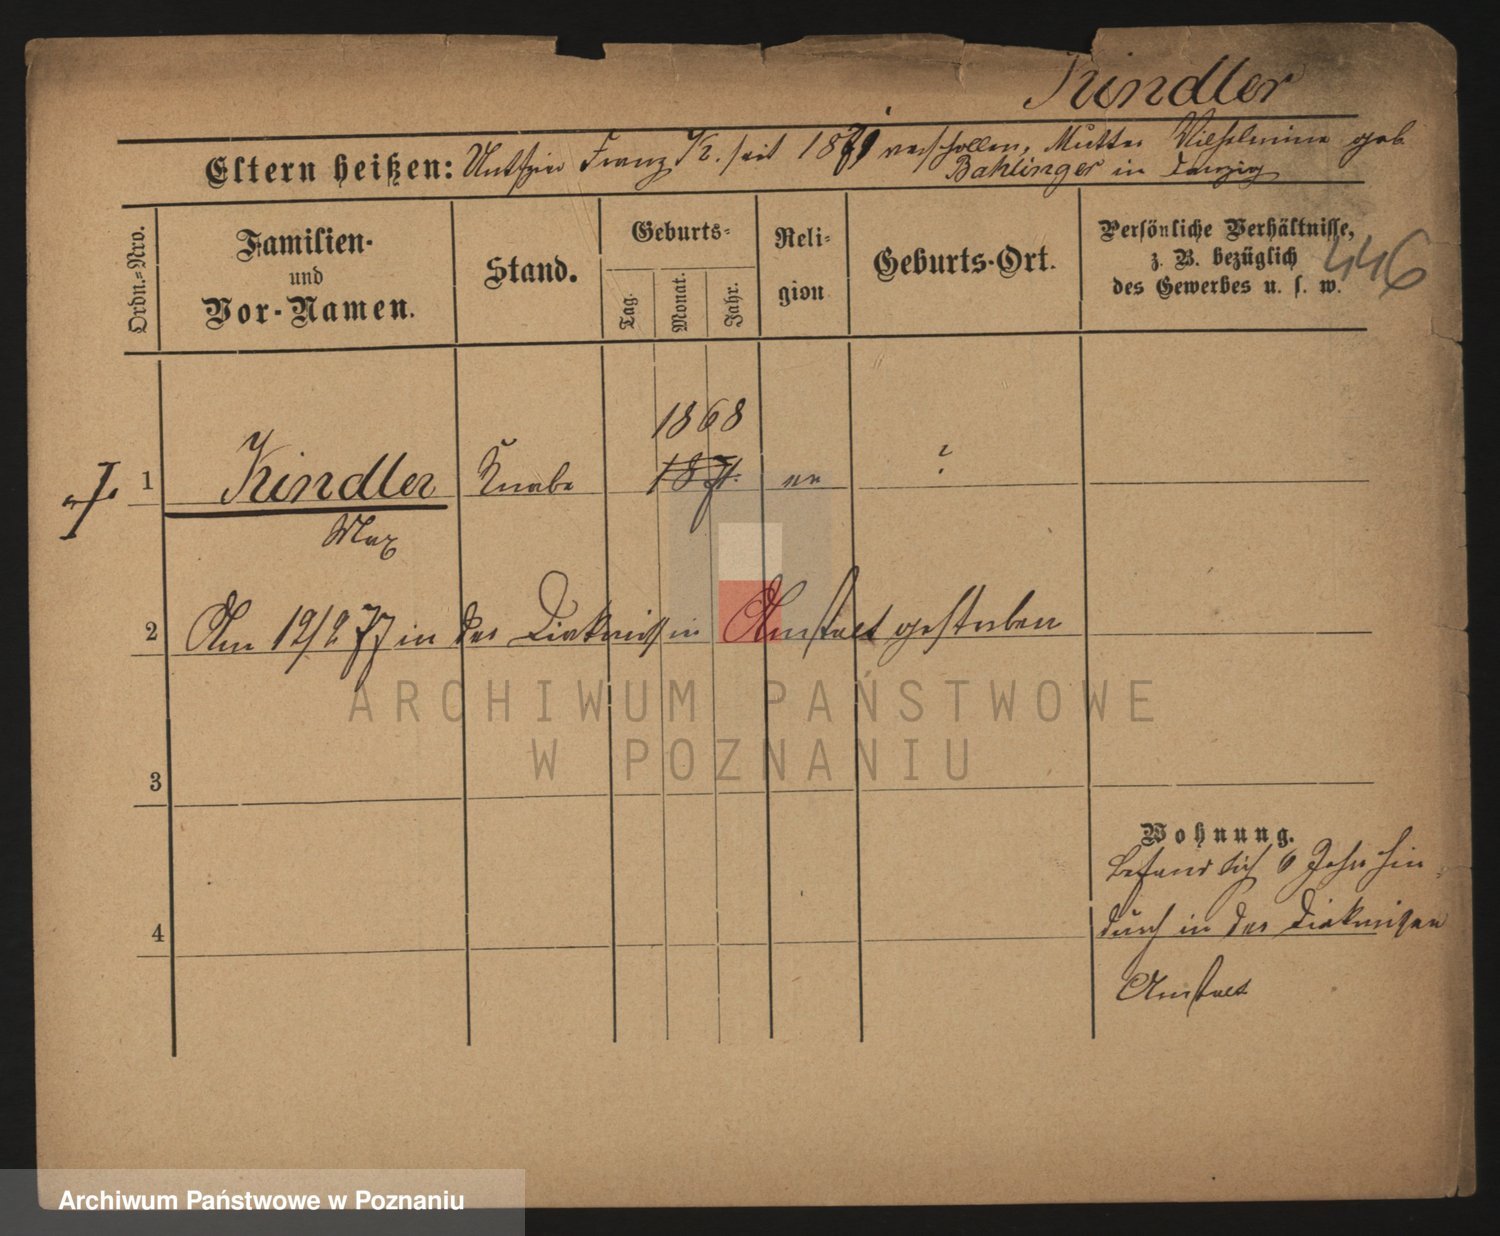 Kindler
Eltern heißen: Untffzier Franz K. seit 1871 verschollen, Mutter Wilhelmine geb.
Bahlinger in Danzig
Ordn.=Nro.
Familien-
und
Vor-Namen.
Stand.
Geburts=
Tag.
Monat.
Jahr.
Reli=
gion
Geburts-Ort.
Persönliche Verhältnisse,
z. B. bezüglich
des Gewerbes u. s. w.
446
1868
1 Kindler Knabe 1871. ev ?
Max
2 Am 12/2 77 in der Diakonissin Anstalt gestorben
ARCHIWUM PAŃSTWOWE
W POZNANIU
3
4
Wohnung.
befand sich 6 Jahr hin
durch in der Diakonissen
Anstalt
Archiwum Państwowe w Poznaniu